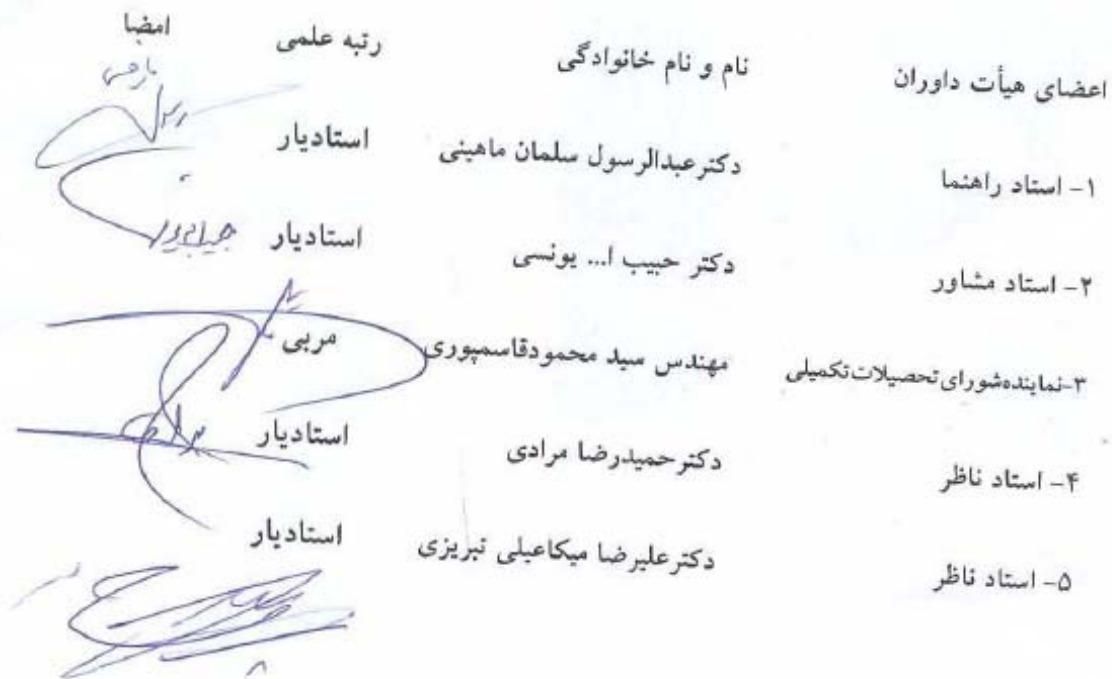 اعضای هیأت داوران نام و نام خانوادگی رتبه علمی امضا
۱- استاد راهنما دکترعبدالرسول سلمان ماهینی استادیار
۲- استاد مشاور دکتر حبیب ا... یونسی استادیار
۳-نماینده‌شورای تحصیلات تکمیلی مهندس سید محمودقاسمپوری مربی
۴- استاد ناظر دکترحمیدرضا مرادی استادیار
۵- استاد ناظر دکترعلیرضا میکاعیلی تبریزی استادیار